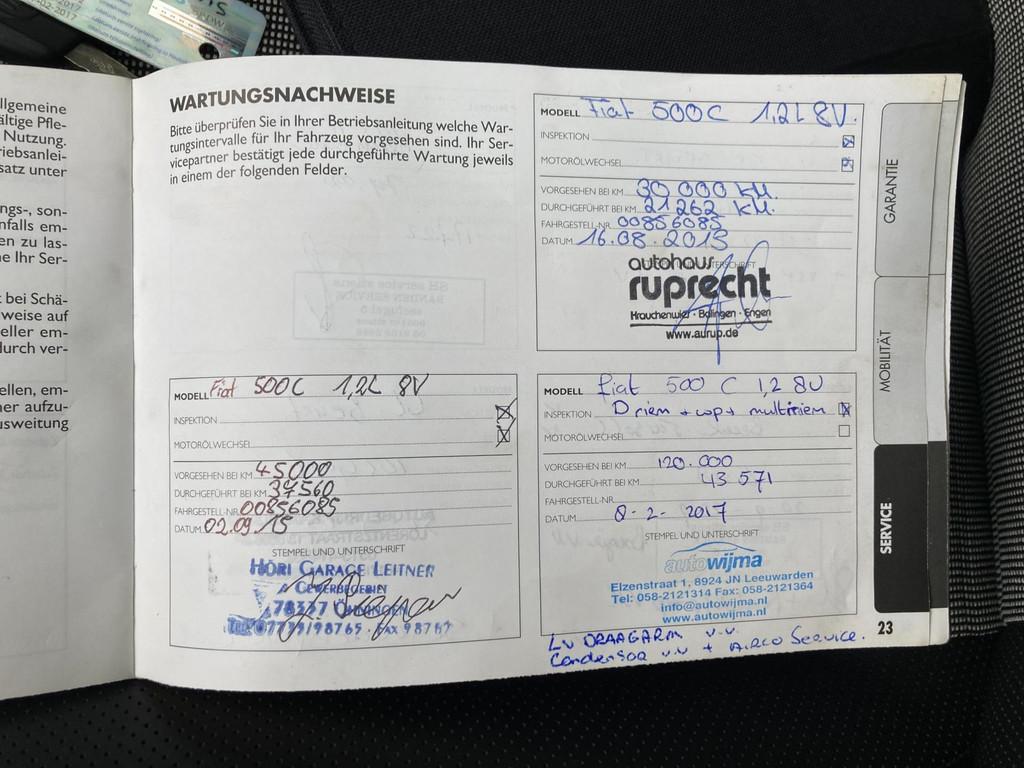 llgemeine
ältige Pfle-
Nutzung.
riebsanlei-
satz unter
ngs-, son-
nfalls em-
en zu las-
he Ihr Ser-
t bei Schä-
weise auf
eller em-
durch ver-
ellen, em-
ner aufzu-
usweitung
WARTUNGSNACHWEISE
Bitte überprüfen Sie in Ihrer Betriebsanleitung welche War-
tungsintervalle für Ihr Fahrzeug vorgesehen sind. Ihr Ser-
vicepartner bestätigt jede durchgeführte Wartung jeweils
in einem der folgenden Felder.
MODELL Fiat 500C 1,2L 8V.
INSPEKTION
MOTORÖLWECHSEL
VORGESEHEN BEI KM 30 000 KM.
DURCHGEFÜHRT BEI KM 21 262 KM.
FAHRGESTELL-NR. 00856085
DATUM 16.08.2013
autohaus
ruprecht
Krauchenwies · Balingen · Engen
www.aurup.de
MODELL Fiat 500C 1,2L 8V
INSPEKTION
MOTORÖLWECHSEL
VORGESEHEN BEI KM 45000
DURCHGEFÜHRT BEI KM 37560
FAHRGESTELL-NR. 00856085
DATUM 02.09.15
STEMPEL UND UNTERSCHRIFT
HÖRI GARAGE LEITNER
GEWERBEGEBIET
78337 ÖHNINGEN
MODELL fiat 500 C 1,2 8V
INSPEKTION D riem + wp + multiriem
MOTORÖLWECHSEL
VORGESEHEN BEI KM 120.000
DURCHGEFÜHRT BEI KM 43 571
FAHRGESTELL-NR.
DATUM 8-2-2017
STEMPEL UND UNTERSCHRIFT
autowijma
Elzenstraat 1, 8924 JN Leeuwarden
Tel: 058-2121314 Fax: 058-2121364
info@autowijma.nl
www.autowijma.nl
LV DRAAGARM v.v.
Condensor v.v + AIRCO Service.
GARANTIE
MOBILITÄT
SERVICE
23